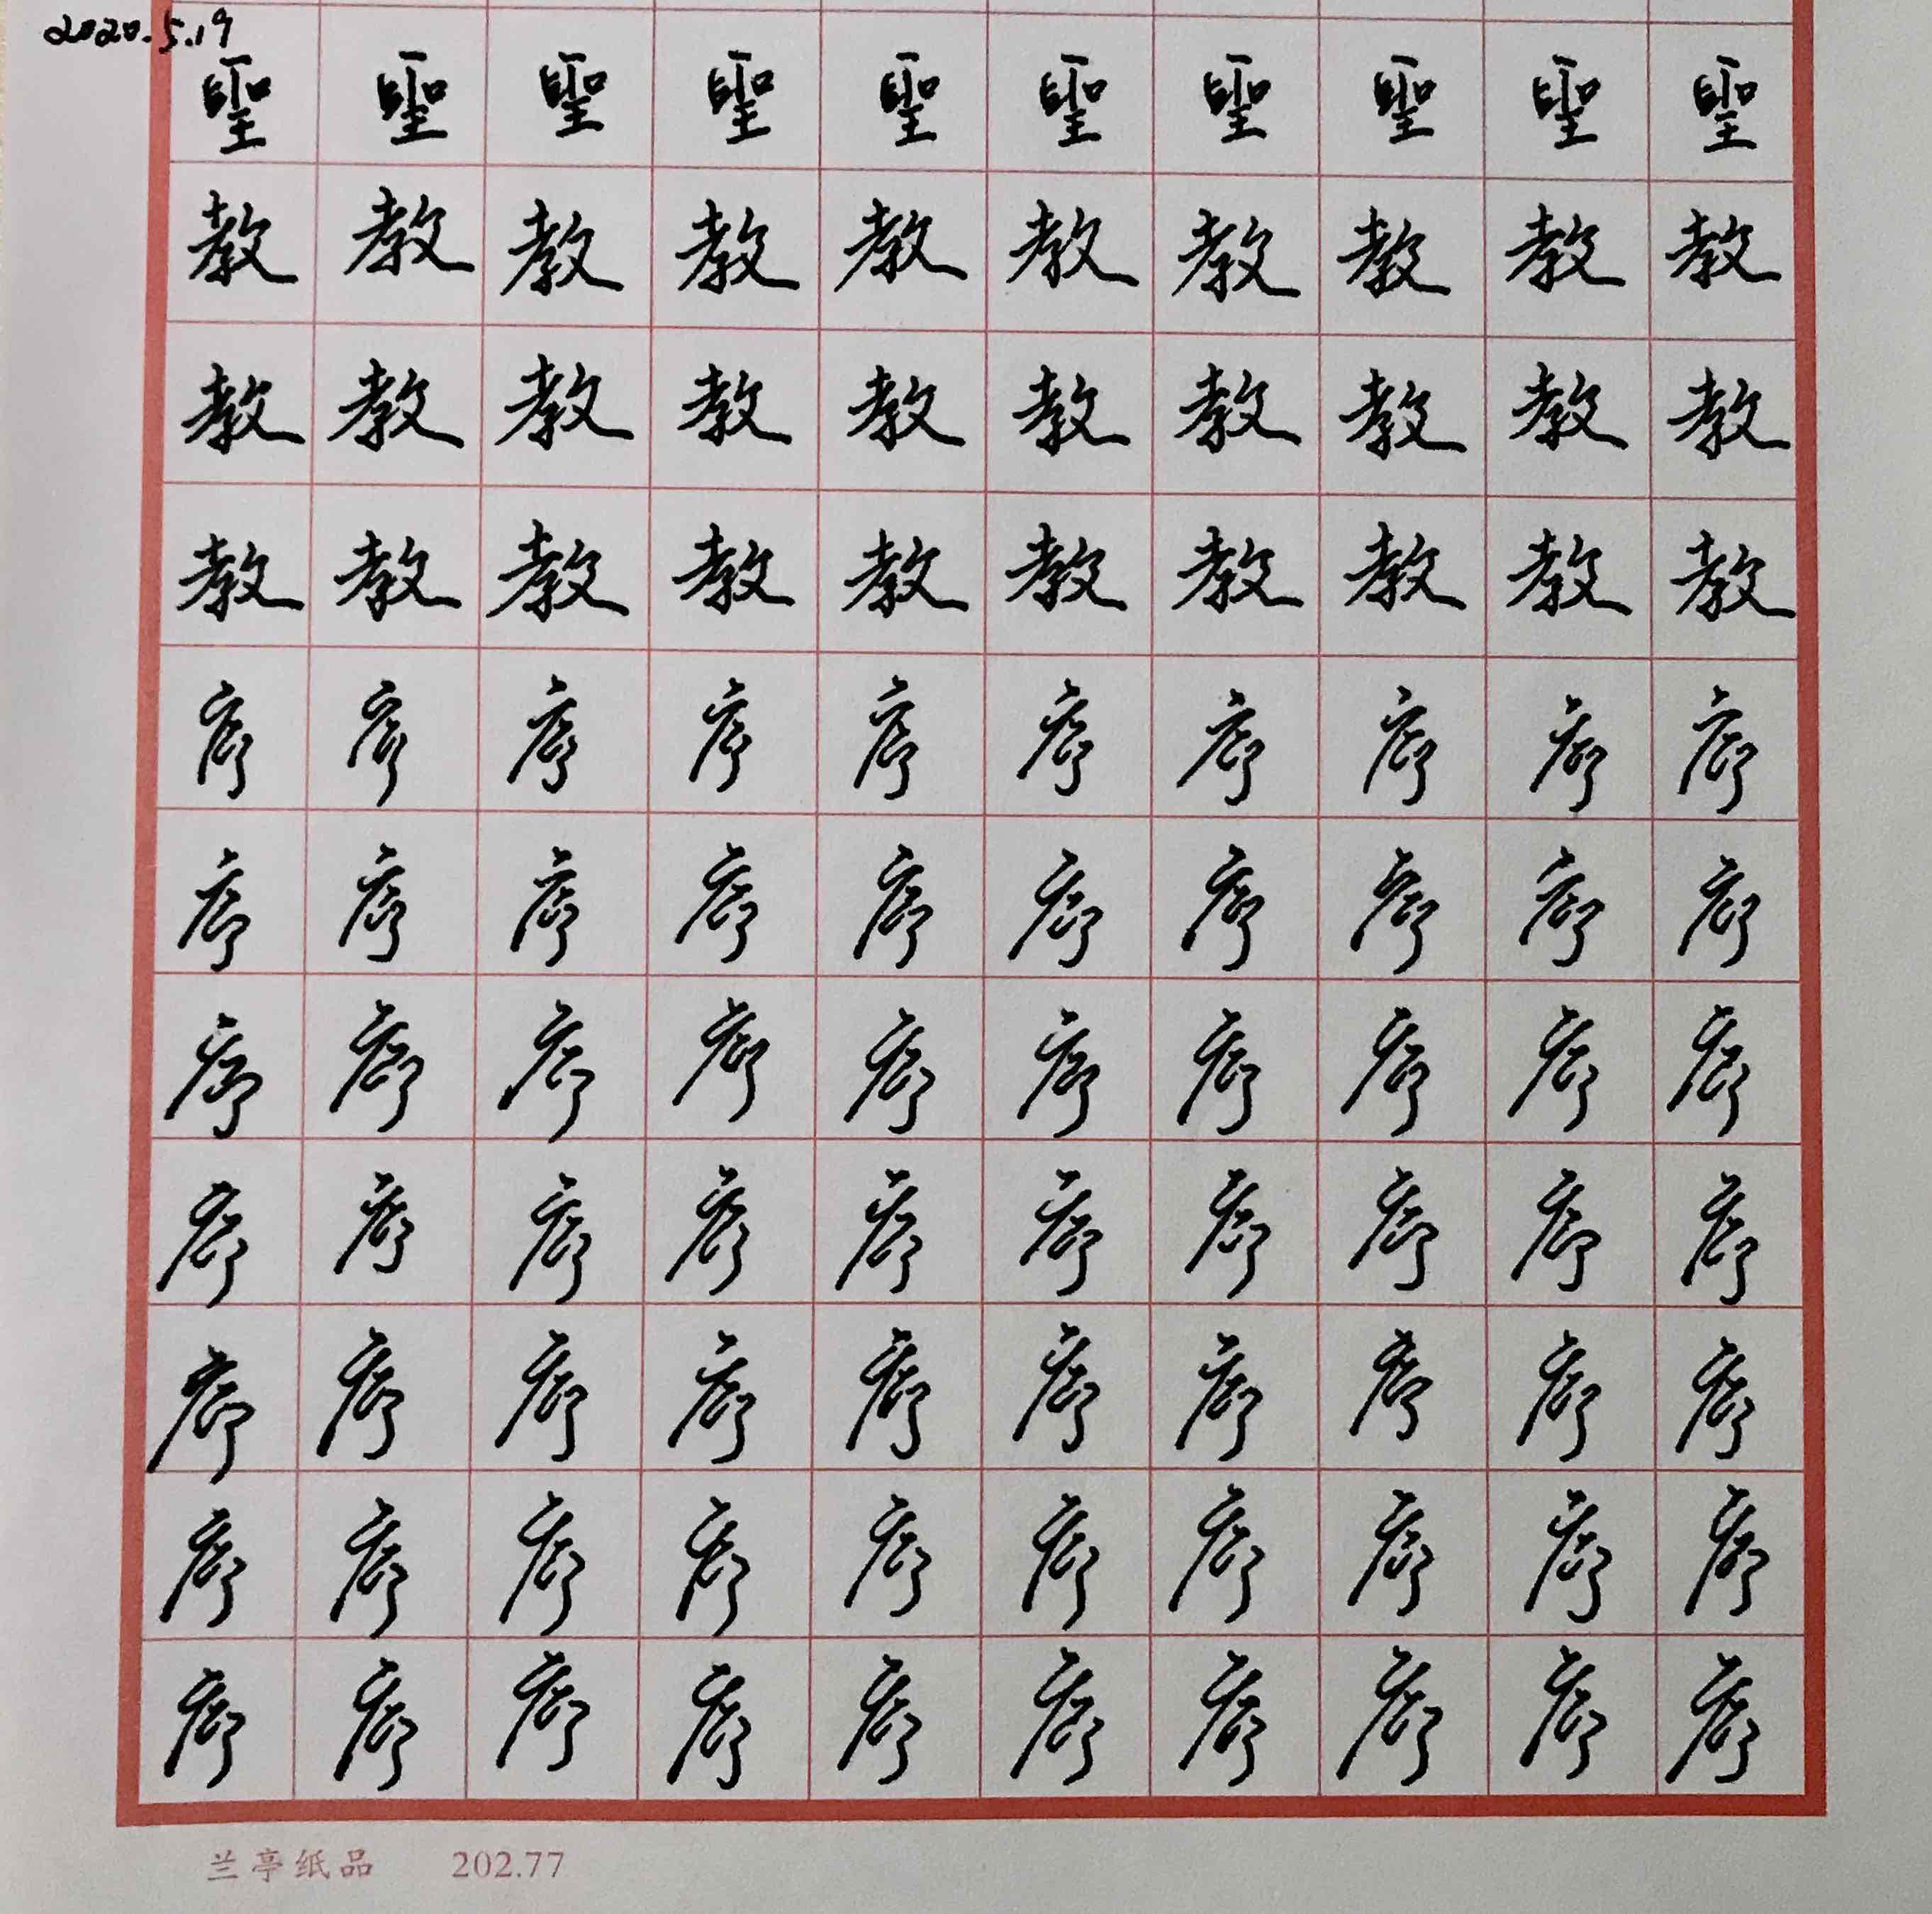 2020.5.19
聖聖聖聖聖聖聖聖聖聖
教教教教教教教教教教
教教教教教教教教教教
教教教教教教教教教教
序序序序序序序序序序
序序序序序序序序序序
序序序序序序序序序序
序序序序序序序序序序
序序序序序序序序序序
序序序序序序序序序序
序序序序序序序序序序
兰亭纸品 202.77